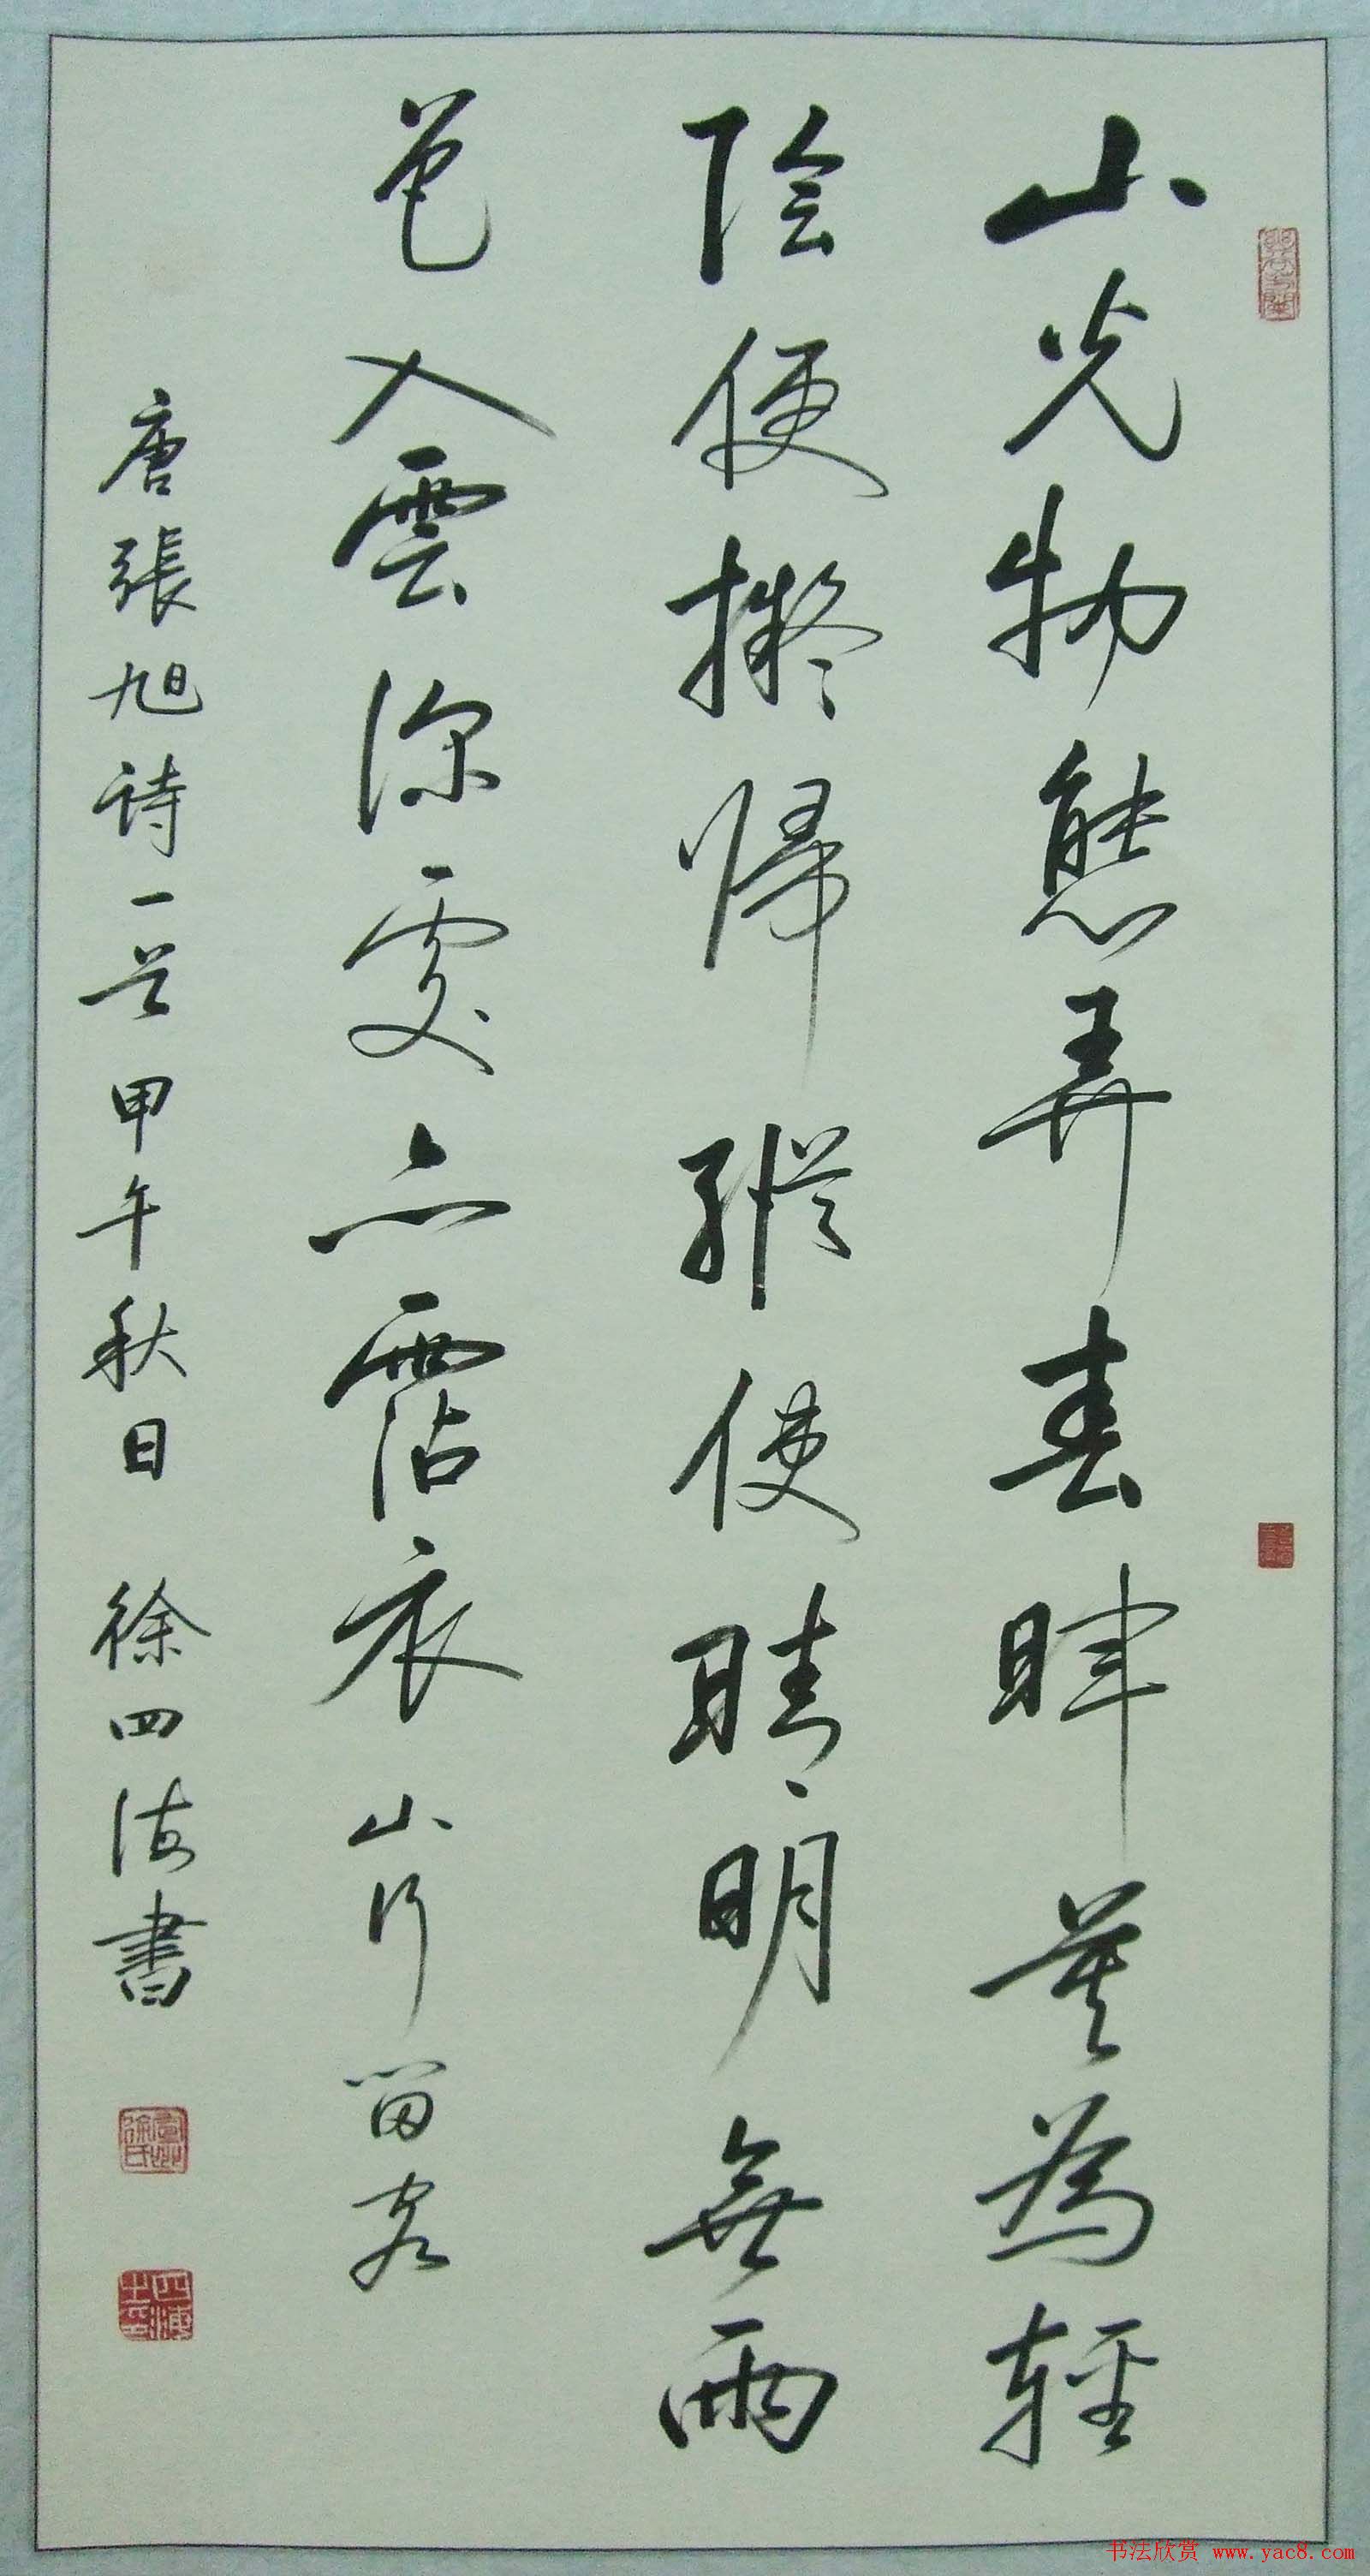 山光物態弄春暉莫為輕
陰便擬歸縱使晴明無雨
色入雲深處亦霑衣山行留客
唐張旭詩一首甲午秋日徐四海書
徐氏
四海
书法欣赏 www.yac8.com